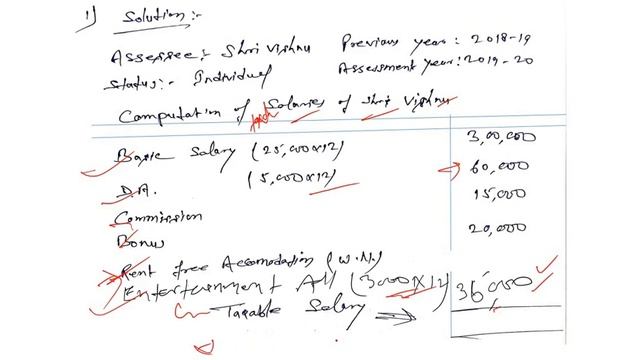 1) Solution :-
Assessee :- Shri Vishnu Previous year : 2018-19
Status :- Individual Assessment year : 2019-20
Computation of Salaries of Shri Vishnu
Basic Salary (25,000x12) 3,00,000
D.A. (5,000x12) 60,000
Commission 15,000
Bonus 20,000
Rent free Accomodation (W.N.)
Entertainment All (3000x12) 36,000
Taxable Salary